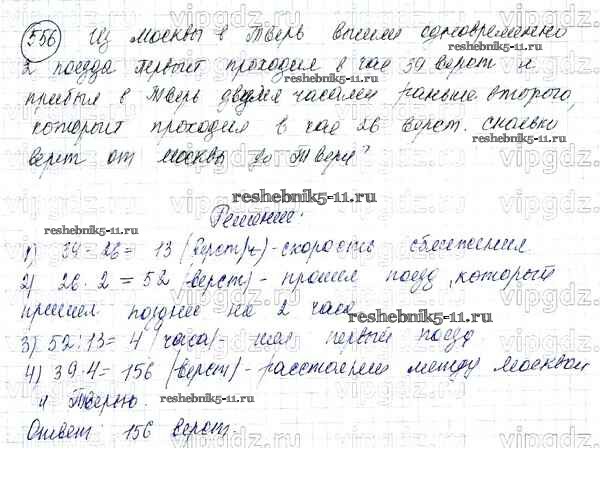 556 Из Москвы в Тверь вышли одновременно
2 поезда. Первый проходил в час 39 верст и
прибыл в Тверь двумя часами раньше второго,
который проходил в час 26 верст. Сколько
верст от Москвы до Твери?
reshebnik5-11.ru
Решение.
reshebnik5-11.ru
1) 39 - 26 = 13 (верст/ч) - скорость сближения
2) 26 · 2 = 52 (верст) - прошел поезд, который
пришел позднее на 2 часа
reshebnik5-11.ru
3) 52 : 13 = 4 (часа) - шел первый поезд.
4) 39 · 4 = 156 (верст) - расстояние между Москвой
и Тверью.
reshebnik5-11.ru
Ответ: 156 верст.
vipgdz.ru